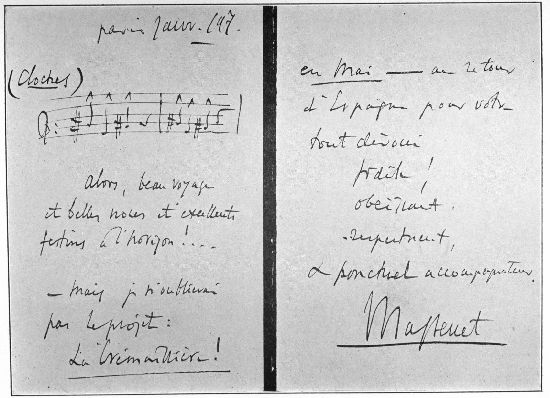 Paris Janv. 197.
(Cloches)
Alors, beau voyage
et belles noces et excellents
festins à l'horizon!....
— mais je n'oublierai
pas le projet:
La Crémaillère!
en Mai — au retour
d'Espagne pour votre
tout dévoué
fidèle!
obéissant.
respectueux,
& ponctuel accompagnateur.
Massenet